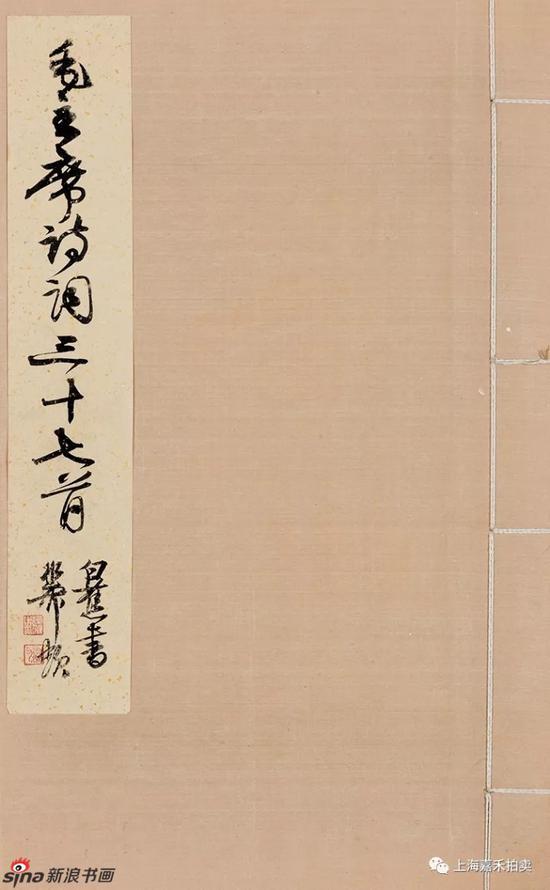 毛主席诗词三十七首
白蕉書
sina新浪书画
上海嘉禾拍卖